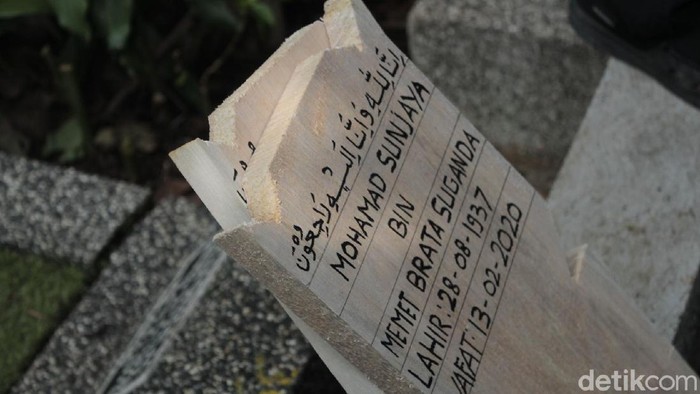 إِنَّا لِلَّهِ وَإِنَّا إِلَيْهِ رَاجِعُونَ
MOHAMAD SUNJAYA
BIN
MEMET BRATA SUGANDA
LAHIR: 28-08-1937
WAFAT: 13-02-2020
detikcom